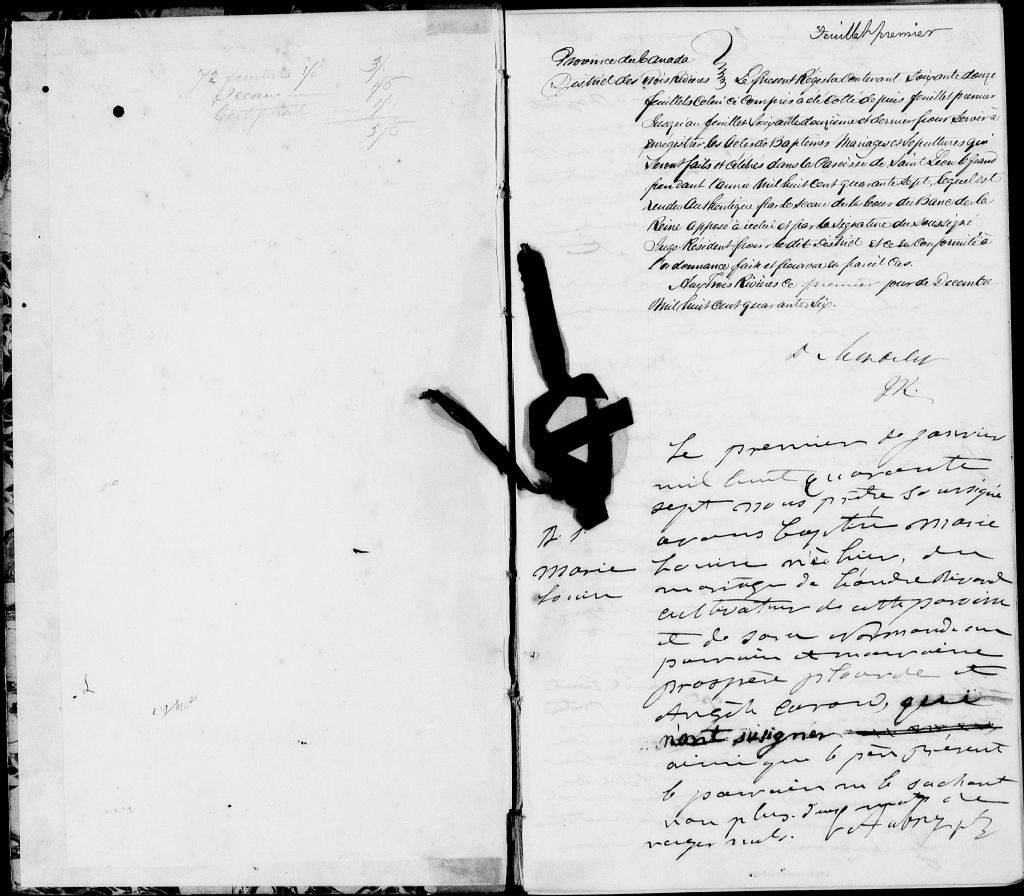 72 feuillets
3/
Sceau
1/5
Certificat
1/
3/5
Feuillet premier
Province du Canada
District des Trois Rivières Le présent Régistre contenant Soixante douze
feuillets Celui ci compris a été Cotté depuis feuillet premier
Jusqu'au feuillet Soixante douzieme et dernier pour Servir à
enregistrer les Actes de Baptêmes Mariages et Sepultures qui
Seront faits et célébrés dans la Paroisse de Saint Leon le grand
pendant l'année Mil huit cent quarante Sept, lequel est
rendu Authentique par le Sceau de la Cour du Banc de la
Reine apposé à icelui et par la Signature du Soussigné
Juge Resident pour le dit District et ce en Conformité à
l'ordonnance faite et pourvue en pareil Cas.
Aux Trois Rivières ce premier jour de Decembre
Mil huit cent quarante Six.
D Mondelet
Le premier de janvier
mil huit quarante
sept nous prêtre soussigné
B. 1
avons baptisé Marie
Marie
Louise née hier, du
Louise
mariage de Léandre Rivard
cultivateur de cette paroisse
et de Normandeau
parrain et marraine
prospère plourde et
Angèle Caron, qui
n'ont su signer
ainsi que le père présent
le parrain ne le sachant
non plus. mots de
nuls. Aubry ptre